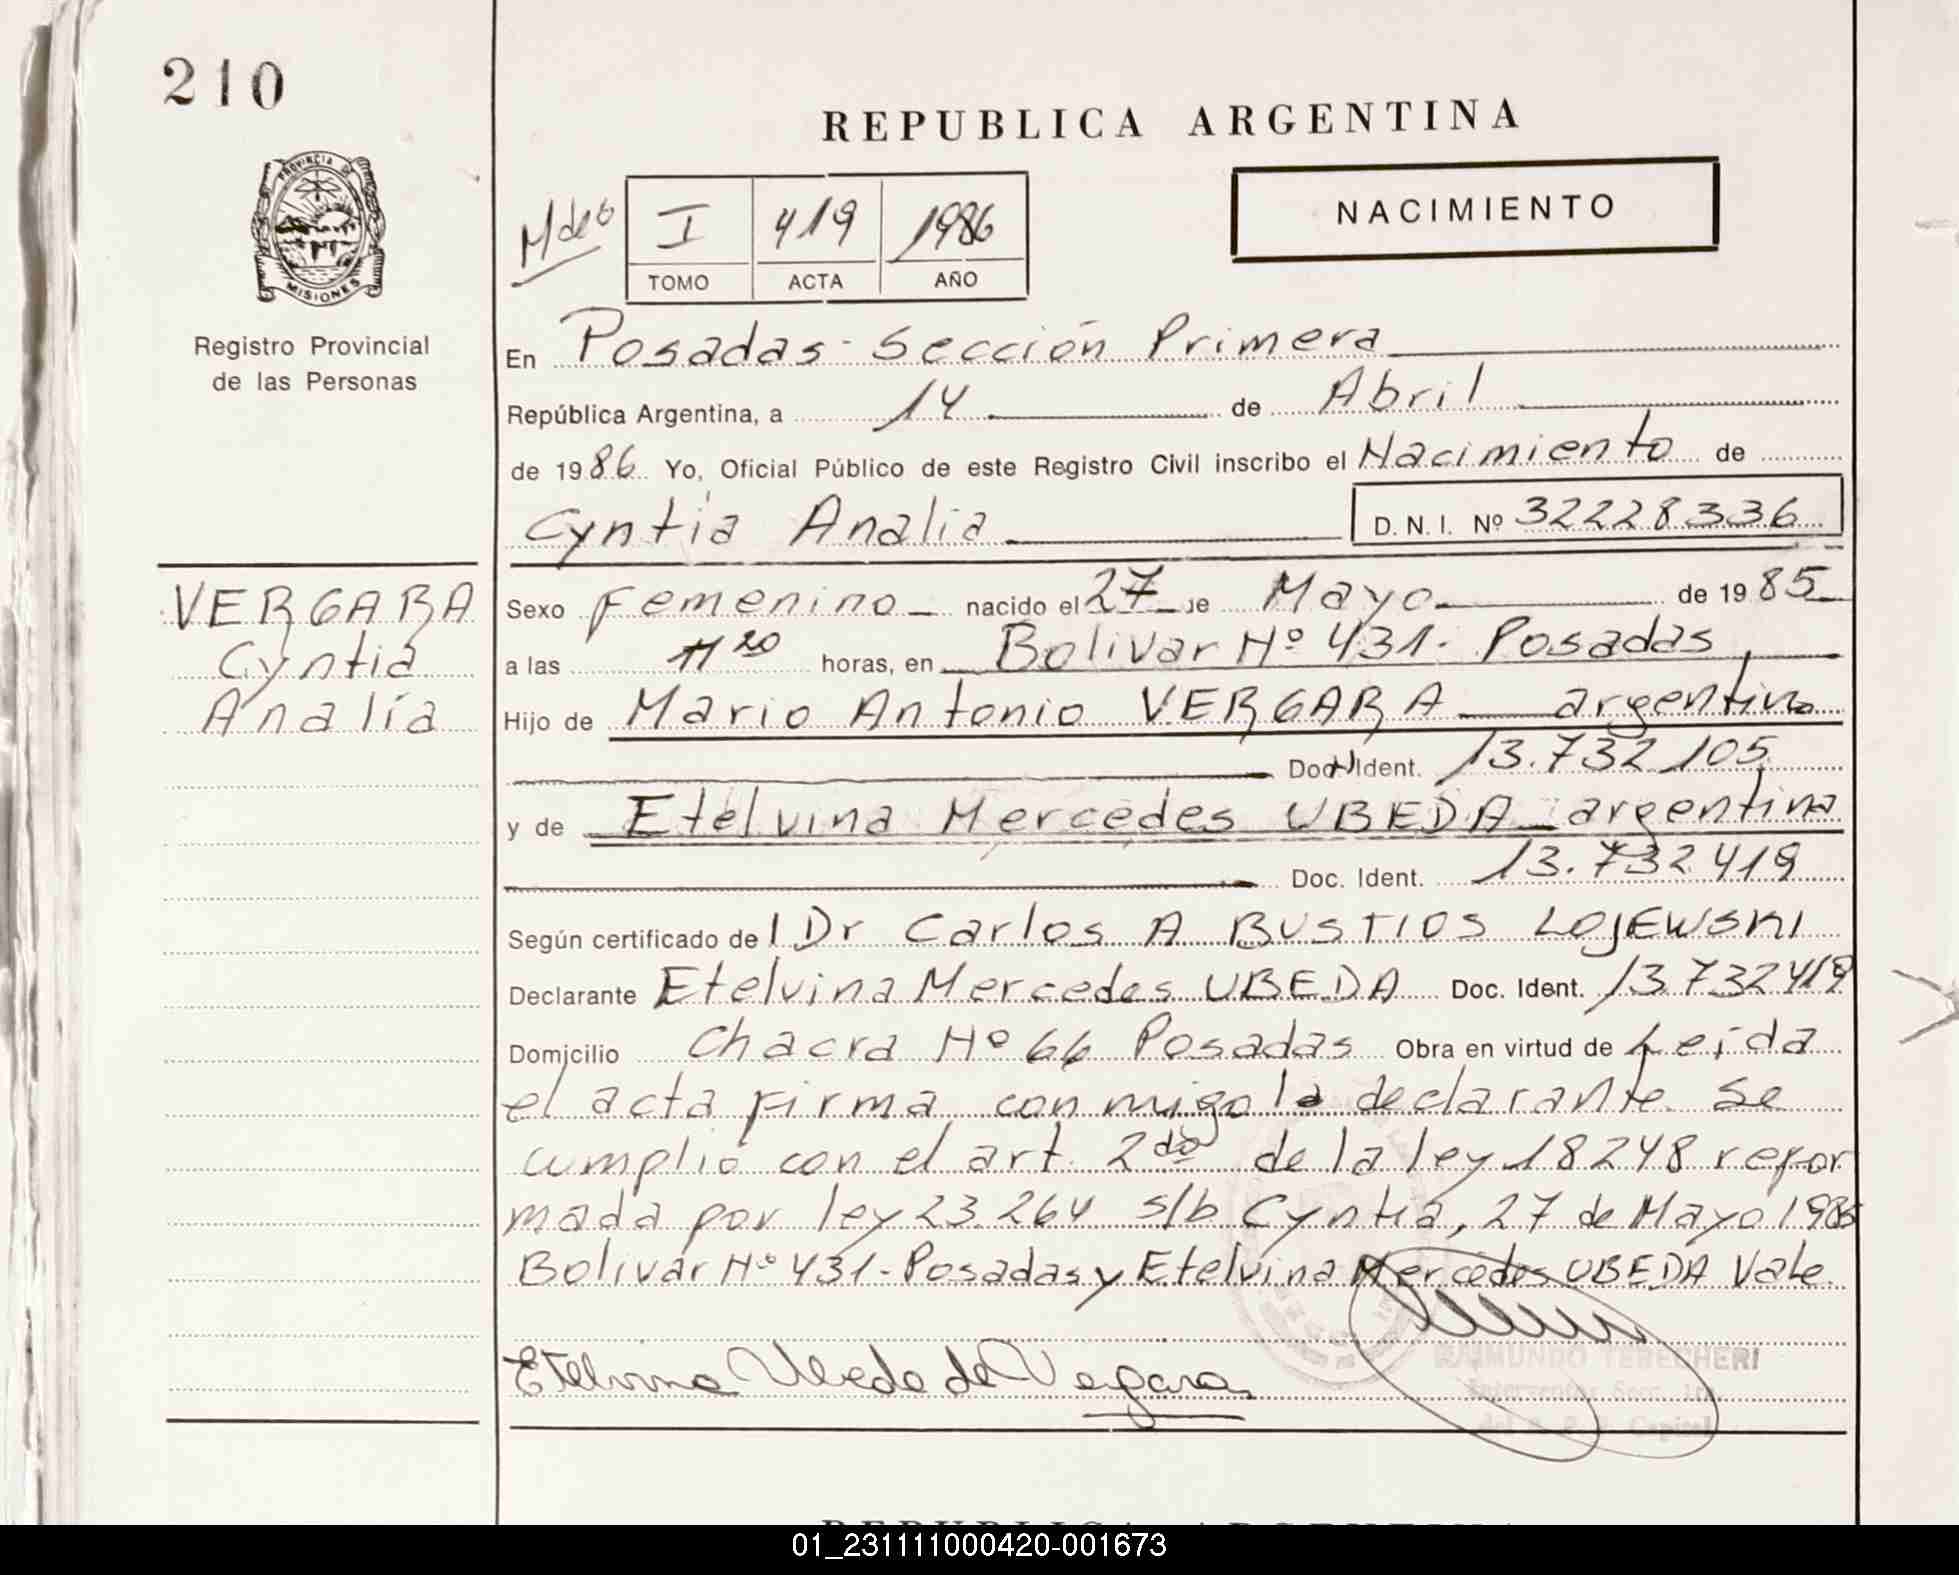 210
REPUBLICA ARGENTINA
NACIMIENTO
I 419 1986
TOMO ACTA AÑO
PROVINCIA DE
MISIONES
Registro Provincial
de las Personas
En Posadas - Sección Primera
República Argentina, a 14 de Abril
de 1986 Yo, Oficial Público de este Registro Civil inscribo el Nacimiento de
Cyntia Analia D. N. I. Nº 32228336
VERGARA
Cyntia
Analía
Sexo Femenino nacido el 27 de Mayo de 1985
a las 11 20 horas, en Bolivar Nº 431- Posadas
Hijo de Mario Antonio VERGARA argentino
Doc. Ident. 13.732.105
y de Etelvina Mercedes UBEDA argentina
Doc. Ident. 13.732419
Según certificado del Dr Carlos A BUSTIOS LOJEWSKI
Declarante Etelvina Mercedes UBEDA Doc. Ident. 13732419
Domicilio Chacra Nº 66 Posadas Obra en virtud de Leida
el acta firma conmigo la declarante se
cumplió con el art. 2do de la ley 18248 refor
mada por ley 23.264 s/b Cyntia, 27 de Mayo
Bolivar Nº 431- Posadas y Etelvina Mercedes UBEDA Vale.
Etelvina Ubeda de Vergara
RAIMUNDO TERECHERI
Interventor Secc. 1ra.
Capital
REPUBLICA ARGENTINA
01_231111000420-001673